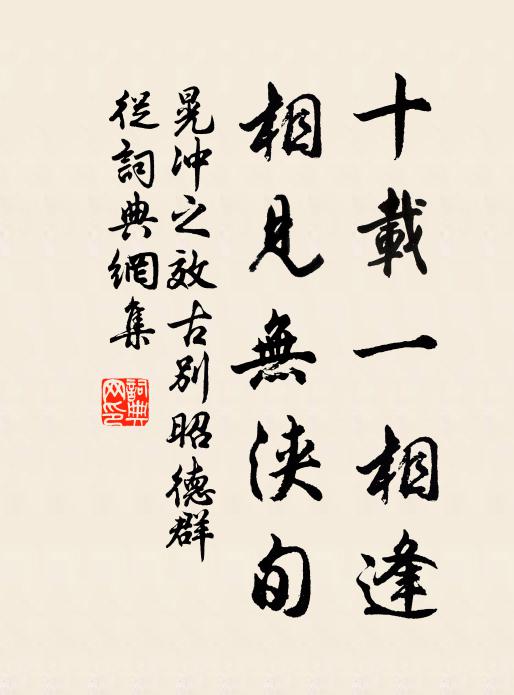 十載一相逢
相見無浹旬
晃沖之效古別昭德群
從詞典網集
詞典网印